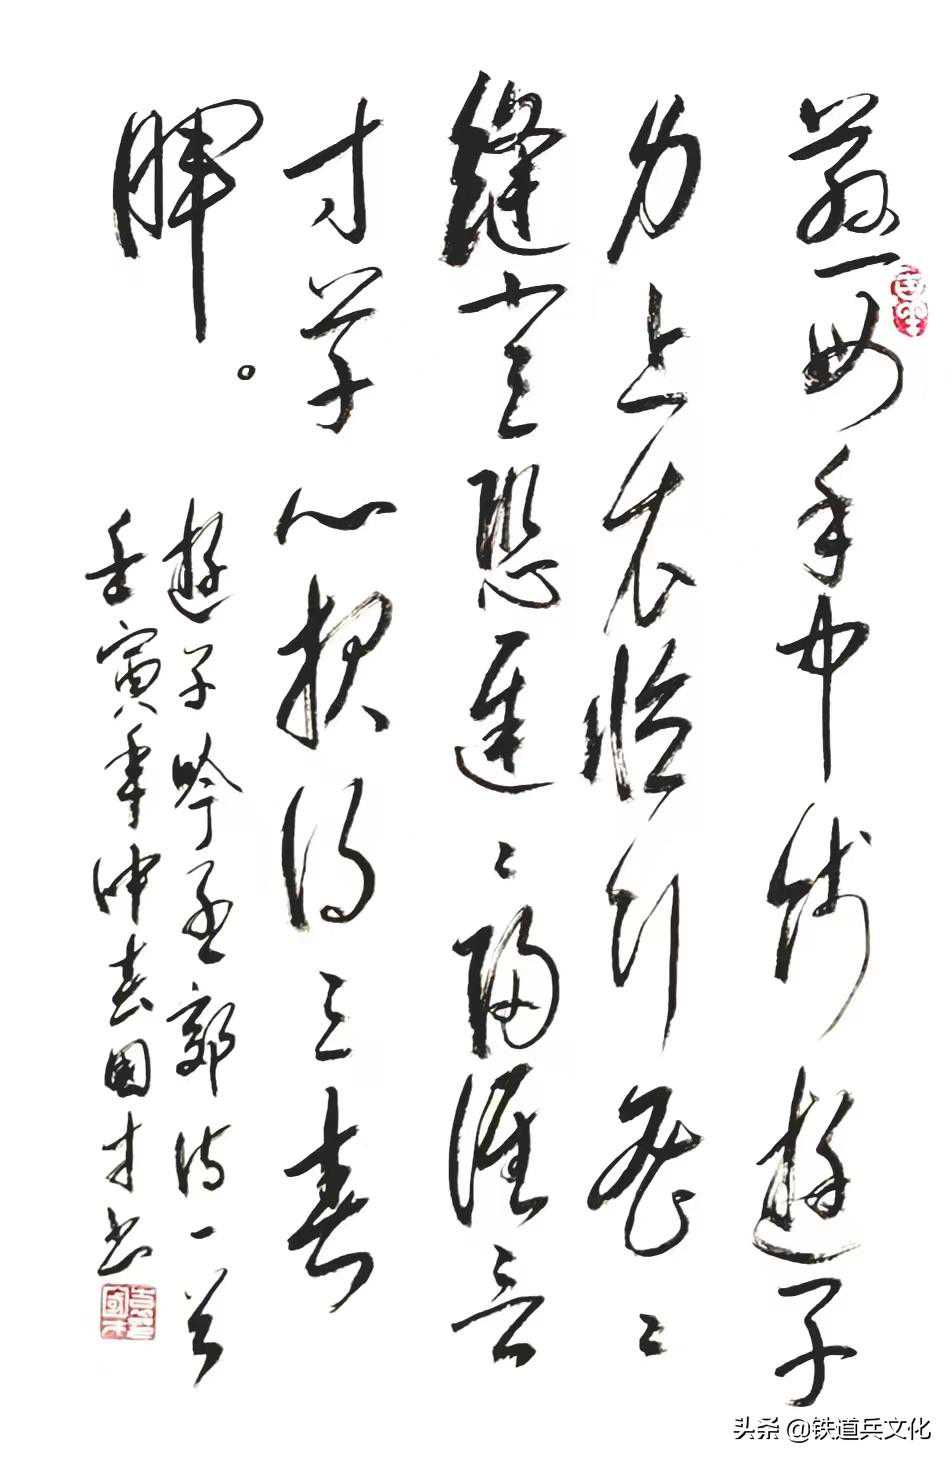 慈母手中线遊子
身上衣临行密々
縫意恐遲々歸谁言
寸草心报得三春
暉。
遊子吟孟郊诗一首
壬寅年仲春国才书
头条 @铁道兵文化